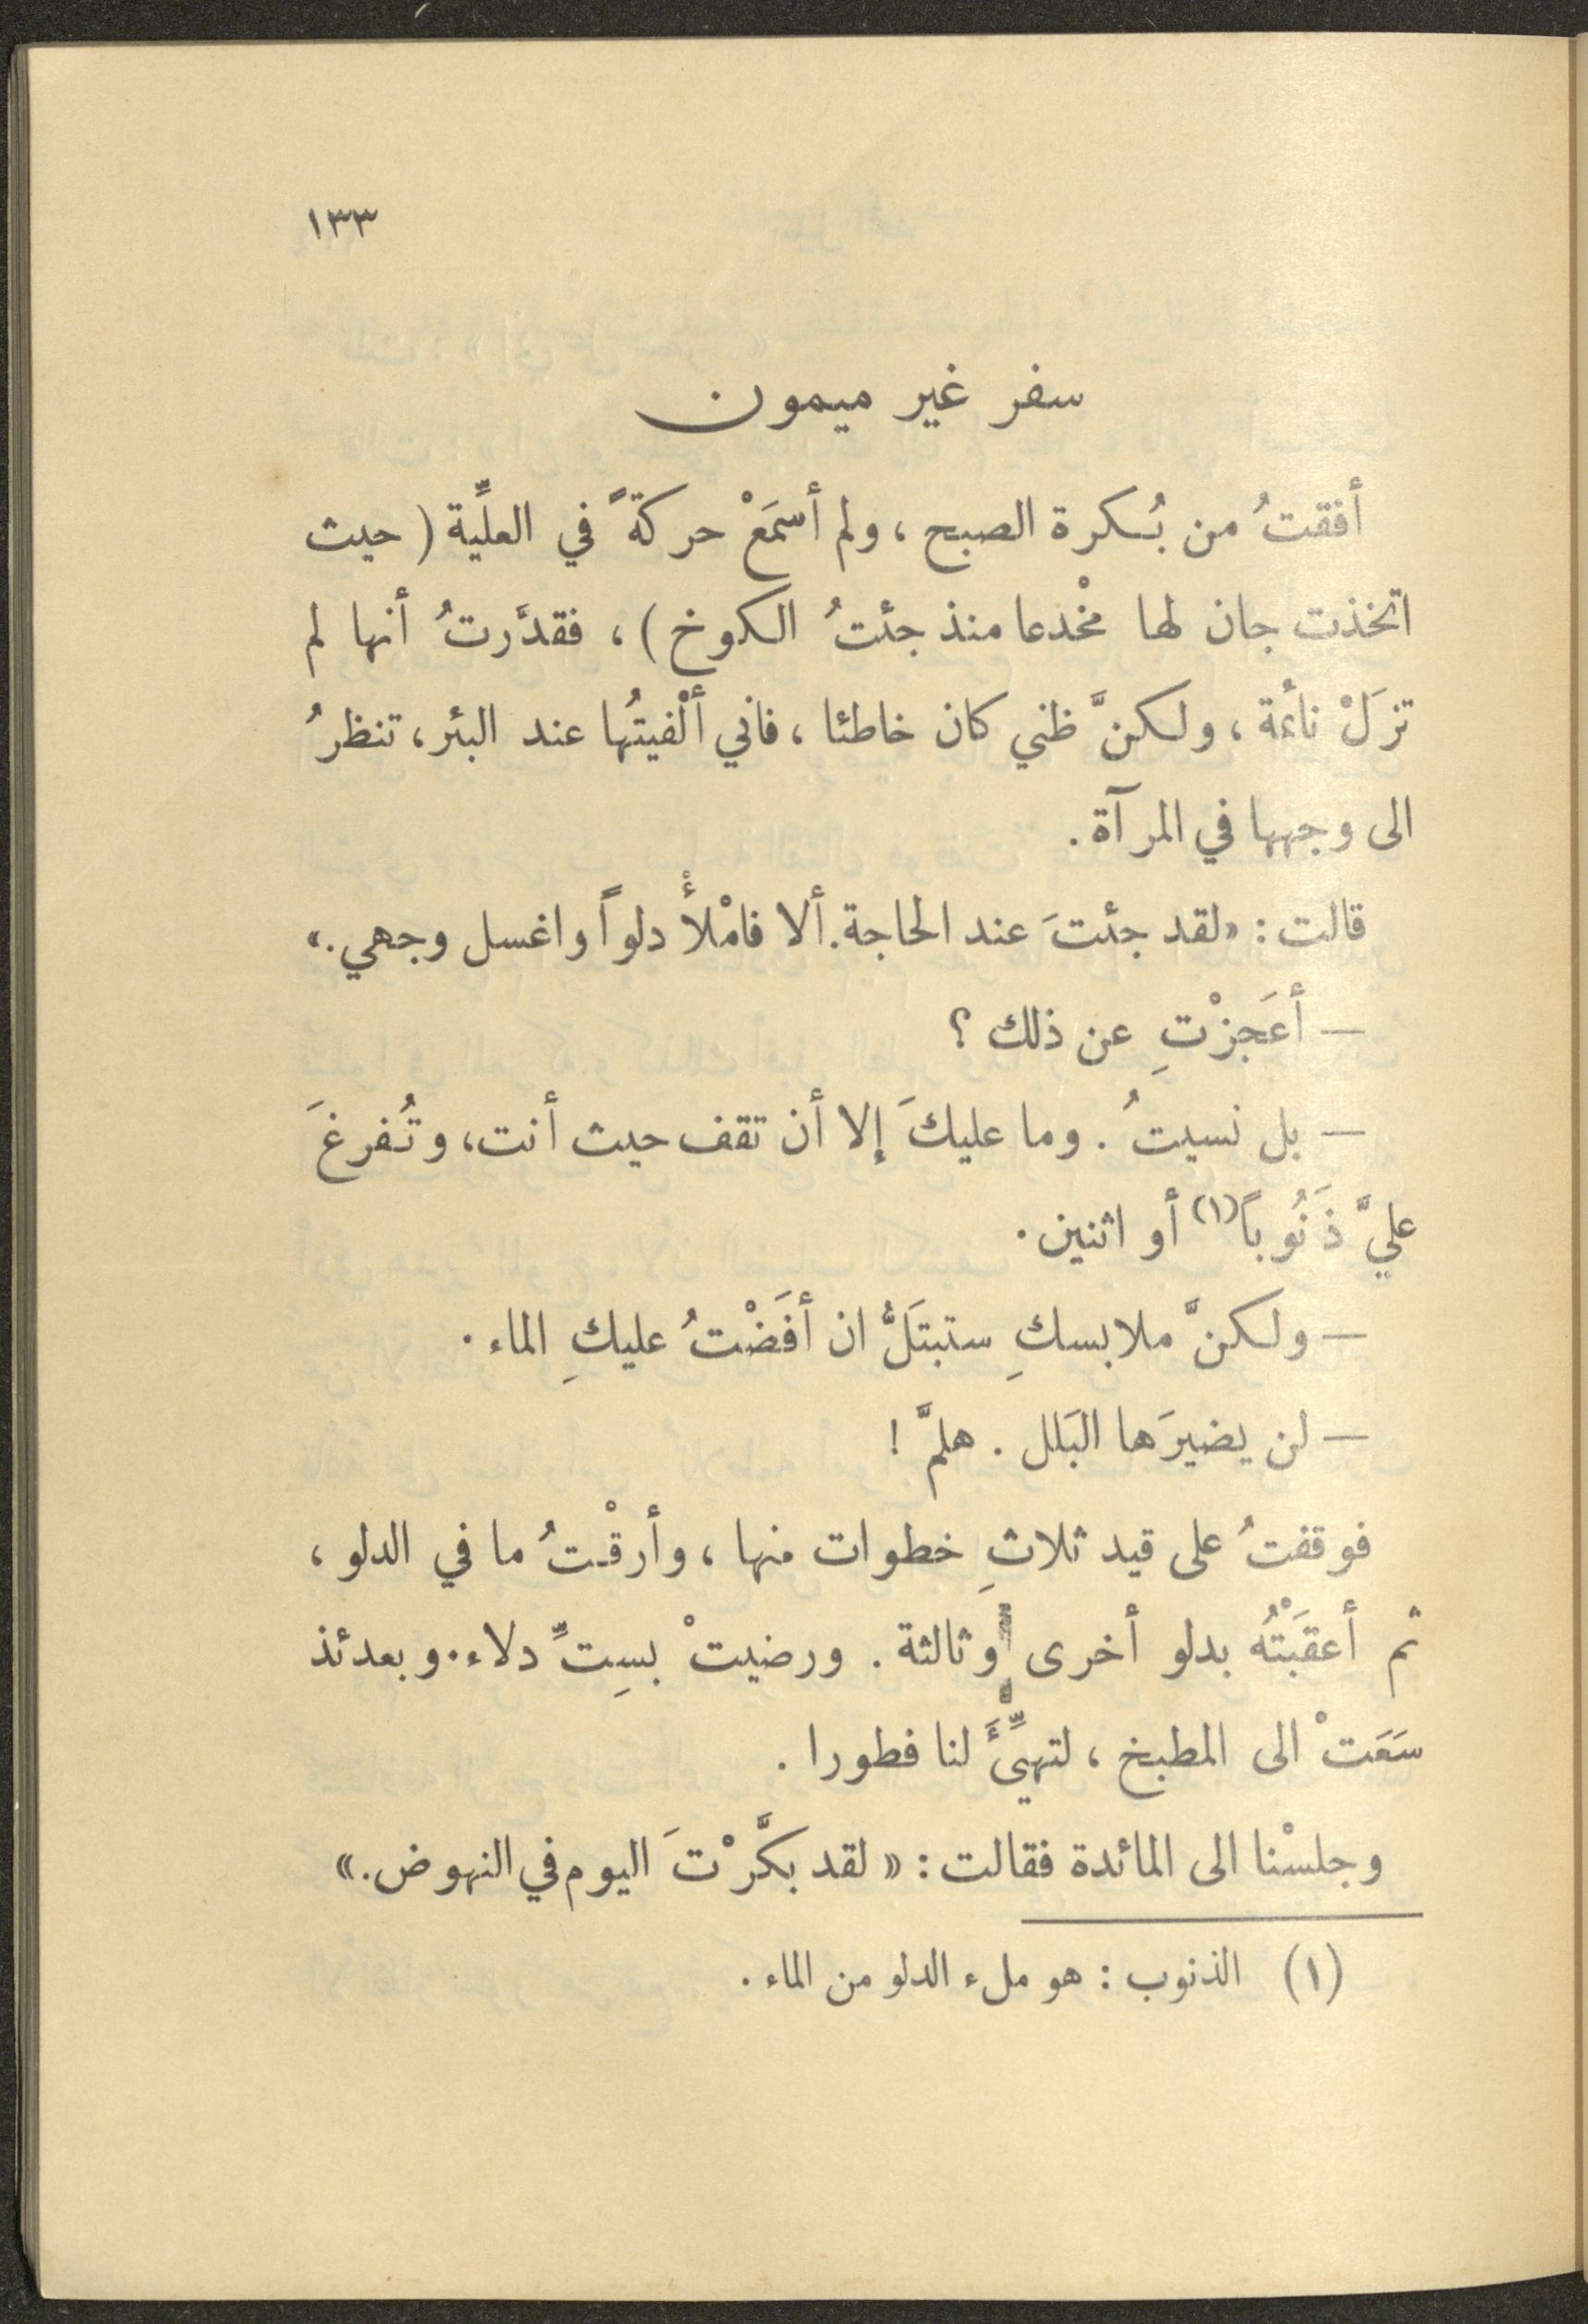 ١٣٣
سفر غير ميمون
أفقتُ من بُكرة الصبح ، ولم أسمَعْ حركةً في العلِّية ( حيث
اتخذت جان لها مخْدعا منذ جئتُ الكوخ ) ، فقدَّرتُ أنها لم
تزَلْ نائمة ، ولكنَّ ظني كان خاطئا ، فاني ألْفيتُها عند البئر ، تنظرُ
الى وجهها في المرآة .
قالت : «لقد جئتَ عند الحاجة . ألا فامْلأْ دلواً واغسل وجهي .»
— أعَجزْتِ عن ذلك ؟
— بل نسيتُ . وما عليكَ إلا أن تقف حيث أنت ، وتُفرغَ
عليَّ ذَنُوباً (١) أو اثنين .
— ولكنَّ ملابسكِ ستبتَلُّ ان أفَضْتُ عليكِ الماء .
— لن يضيرَها البَلل . هلمَّ !
فوقفتُ على قيد ثلاثِ خطوات منها ، وأرقْتُ ما في الدلو ،
ثم أعقبَتْهُ بدلو أخرى وثالثة . ورضيتْ بسِتِّ دلاء . وبعدئذ
سَعَتْ الى المطبخ ، لتهيِّئَ لنا فطورا .
وجلسْنا الى المائدة فقالت : « لقد بكَّرْتَ اليوم في النهوض . »
(١) الذنوب : هو ملء الدلو من الماء .